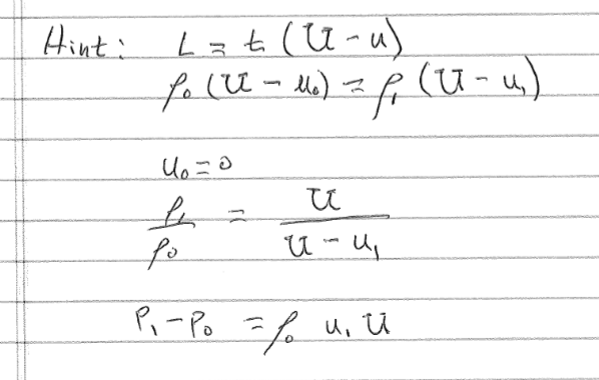 Hint: L = t (U - u)
ρ₀ (U - u₀) = ρ₁ (U - u₁)
u₀ = 0
ρ₁/ρ₀ = U/(U - u₁)
P₁ - P₀ = ρ₀ u₁ U